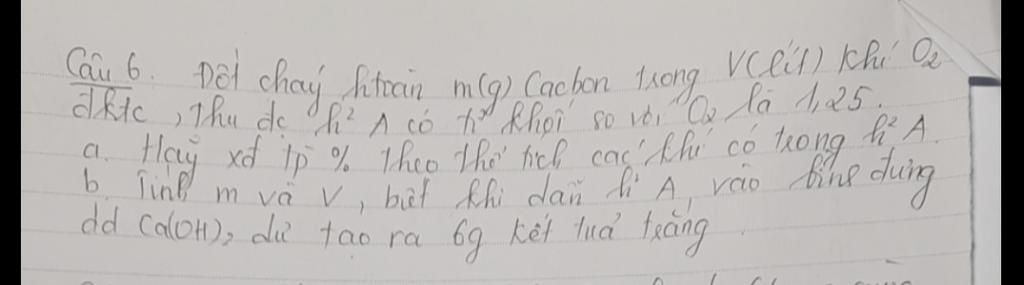 Câu 6. Đốt cháy htoàn m(g) Cacbon trong V(lít) khí O2
đktc, thu đc h² A có tỉ khối so với O2 là 1,25.
a. Hãy xđ tp % theo thể tích các khí có trong h² A.
b. Tính m và V, biết khi dẫn h² A vào bình đựng
dd Ca(OH)2 dư tạo ra 6g kết tuả trắng.